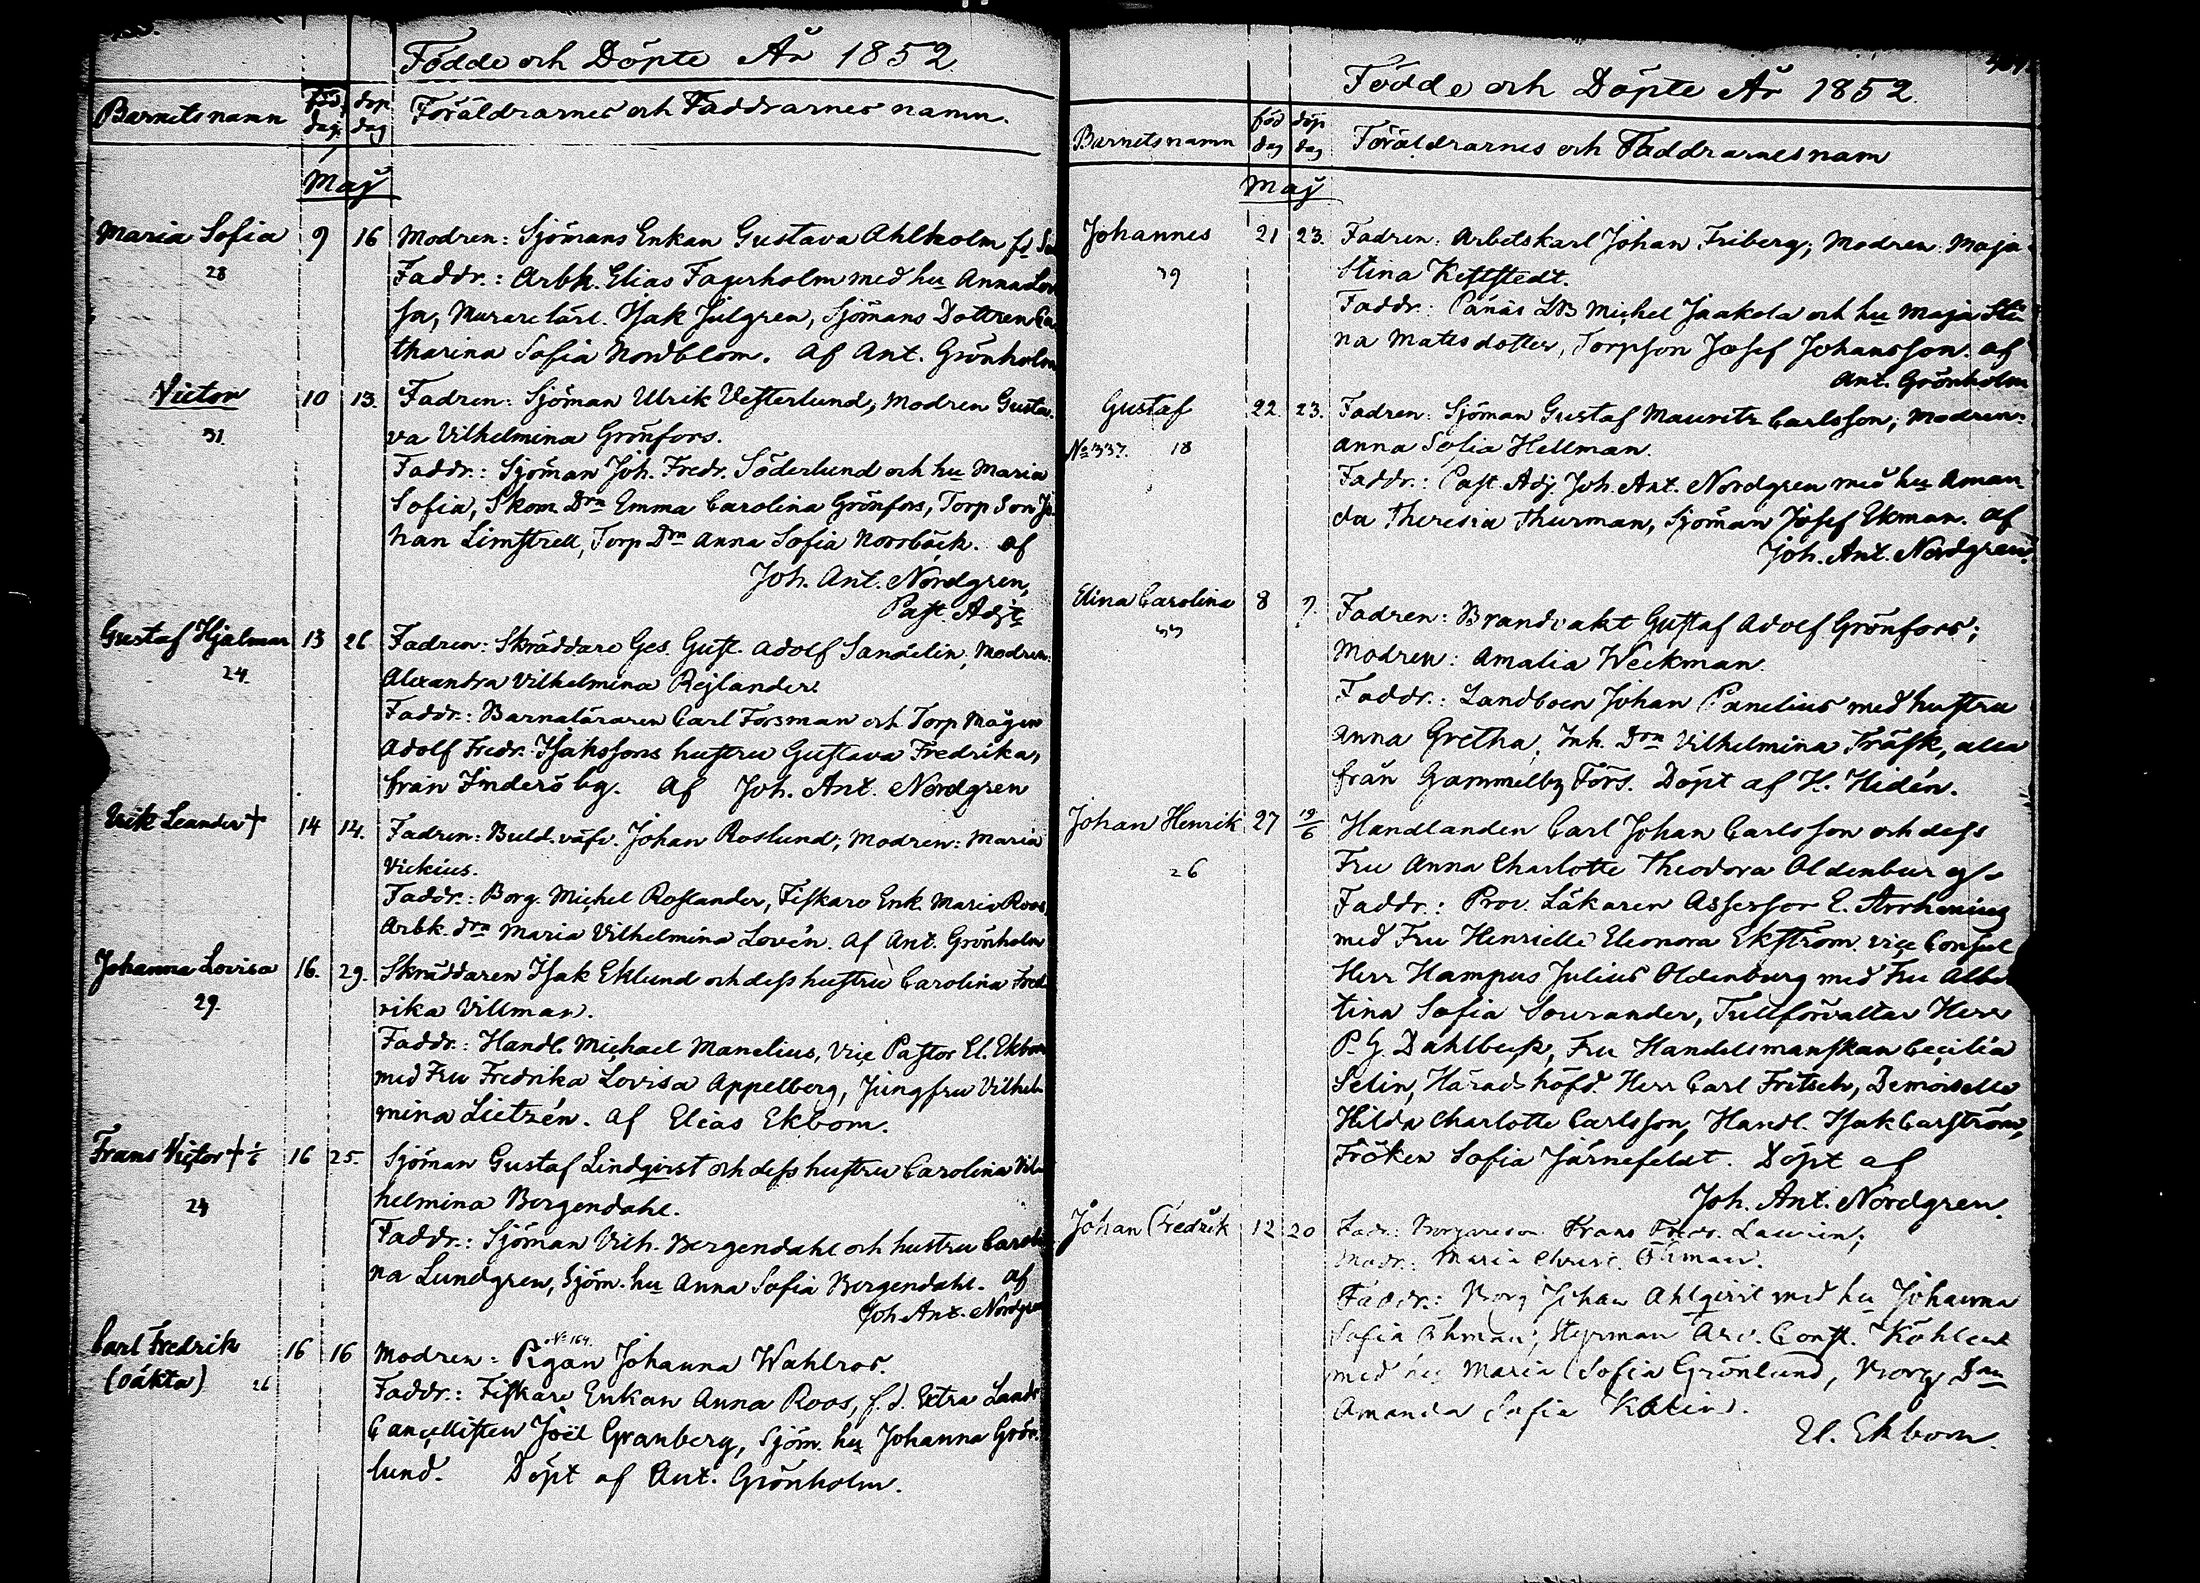 Födde och Döpte År 1852.
Barnets namn
föd. dag.
döp dag
Föräldrarnes och Faddrarnes namn.
Maj
Maria Sofia 9 16 Modren: Sjömans Enkan Gustava Ahlholm
28
Faddr.: Arbk. Elias Fagerholm med hu Anna Lov
sa, Murare lärl. Isak Julgren, Sjömans Dottren Ca
tharina Sofia Nordblom. Af Ant. Grönholm
Victor 10 13. Fadren: Sjöman Ulrik Vesterlund, Modren Gusta-
31.
va Vilhelmina Grönfors.
Faddr.: Sjöman Joh. Fredr. Söderlund och hu Maria
Sofia, Skom. Drn Emma Carolina Grönfors, Torp Son Jo
han Limstrell, Torp Drn Anna Sofia Norrbäck. af
Joh. Ant. Nordgren,
Past. Adjt
Gustaf Hjalmar 13 26 Fadren: Skräddare Ges. Gust. Adolf Sandelin, Modren:
24.
Alexandra Vilhelmina Rejlander.
Faddr.: Barnaläraren Carl Forsman och Torp Mågen
Adolf Fredr. Isakssons hustru Gustava Fredrika,
från Inderö by. Af Joh. Ant. Nordgren
Erik Leander + 14 14. Fadren: Buld. väfv. Johan Roslund; Modren: Maria
Vickius.
Faddr.: Borg. Michel Roslander, Fiskare Enk. Maria Roos,
Arbk. drn Maria Vilhelmina Lovén. Af Ant. Grönholm
Johanna Lovisa 16. 29. Skräddaren Isak Eklund och dess hustru Carolina Fred
29.
rika Villman.
Faddr.: Handl. Michael Manelius, Vice Pastor El. Ekbom
med Fru Fredrika Lovisa Appelberg, Jungfru Vilhel
mina Lietzén. Af Elias Ekbom.
Frans Victor + 1/6 16 25. Sjöman Gustaf Lindqvist och dess hustru Carolina Vil
24
helmina Bergendahl.
Faddr.: Sjöman Vilh. Bergendahl och hustru Caroli
na Lundgren, Sjöm. hu Anna Sofia Bergendahl. Af
Joh. Ant. Nordgren
Carl Fredrik 16 16 Modren: Pigan Johanna Wahlros.
No 164.
(oäkta) 26
Faddr.: Fiskare Enkan Anna Roos, f.d. Extra Lands
Cancellisten Joël Granberg, Sjöm. hu Johanna Grön-
lund. Döpt af Ant. Grönholm.
Födde och Döpte År 1852.
Barnets namn
föd dag
döp dag
Föräldrarnes och Faddrarnes nam
Maj
Johannes 21 23. Fadren: Arbetskarl Johan Friberg; Modren: Maja
39
Stina Kettstedt.
Faddr.: Panäs LB Michel Jaakola och hu Maja Sti
na Matts dotter, Torpson Josef Johansson. af
Ant. Grönholm
Gustaf 22. 23. Fadren: Sjöman Gustaf Mauritz Carlsson; Modren:
No 337. 18
Anna Sofia Hellman.
Faddr.: Past. Adj. Joh. Ant. Nordgren med hu Aman
da Theresia Thurman, Sjöman Josef Ekman. af
Joh. Ant. Nordgren.
Elina Carolina 8 9. Fadren: Brandvakt Gustaf Adolf Grönfors;
33
Modren: Amalia Weckman.
Faddr.: Landboen Johan Panelius med hustru
Anna Gretha, Inh. Drn Vilhelmina Träsk, alla
från Gammelby Förs. Döpt af H. Hidén.
Johan Henrik 27 19/6 Handlanden Carl Johan Carlsson och dess
26
Fru Anna Charlotte Theodora Oldenburg
Faddr.: Prov. Läkaren Assessor E. Arrhenius
med Fru Henriette Eleonora Ekström, vice Consul
Herr Hampus Julius Oldenburg med Fru Alber
tina Sofia Sourander, Tullförvaltar Herr
P. G. Dahlbeck, Fru Handelsmanskan Cecilia
Selin, Häradshöfd. Herr Carl Fritsch, Demoiselle
Hilda Charlotte Carlsson, Handl. Isak Carström,
Fröken Sofia Järnefeldt. Döpt af
Joh. Ant. Nordgren.
Johan Fredrik 12 20 Fadr: Borgareson Frans Fredr. Laurin;
Modr.: Maria Christ. Öhman.
Faddr.: Borg Johan Ahlqvist med hu Johanna
Sofia Öhman; Styrman Arv. Const. Köhler
med hu Maria Sofia Grönlund, Borg Drn
Amanda Sofia Kalin.
El. Ekbom.